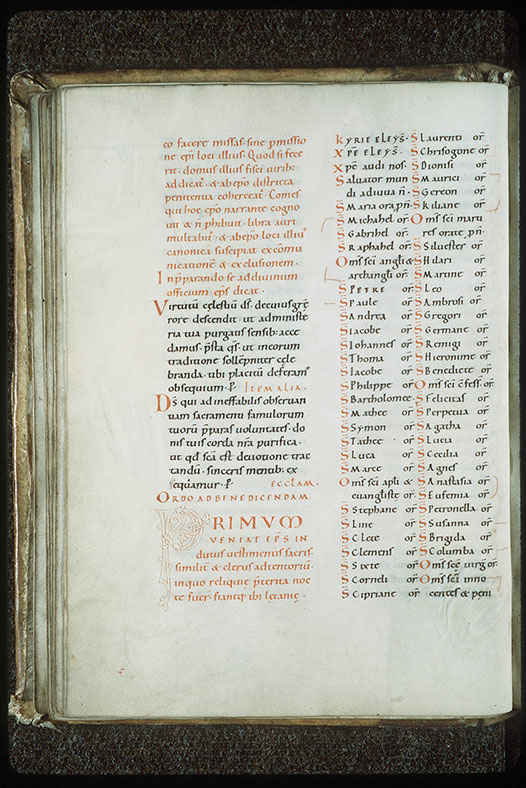 eo facere missas sine pmissio
ne epi loci illius. Quod si fece
rit. domus illius fisci virib;
addicat. & abepo districta
penitentia coherceat. Comes
qui hoc epo narrante cogno
uit & ñ phibuit. libra auri
multabit. & abepo loci illiu
canonica suscipiat excomu
nicatione & exclusionem.
Inpparando se addiuinum
officium. eps dicat.
Virtutū celestiū ds. decuius gre
rore descendit. ut administe
ria tua purgatis sensib: acce
damus. psta qs. ut ineorum
traditione sollepniter cele
branda. tibi placitū deferam
obsequium. P ITEM ALIA.
Ds qui ad ineffabilis obseruan
tiam sacramenti famulorum
tuorū pparas voluntates. do
nis tuis corda nra purifica.
ut qd sca est deuotione trac
tandū. sinceris mentib: ex
sequamur. P ECCLAM.
ORDO AD BENEDICENDAM
PRIMUM
VENIAT EPS IN
dutus uestimentis sacris.
similit & clerus adtentoriū.
inquo reliquie pterita noc
te fuer. fiantq; ibi letanie.
Kyrie eleys.
Xpe eleys.
Xpe audi nos.
Saluator mun
di adiuua ñ.
S Maria ora p ñ.
S Michahel or
S Gabrihel or
S Raphahel or
Oms sci angli &
archangli or
S PETRE or
S Paule or
S Andrea or
S Iacobe or
S Iohannes or
S Thoma or
S Iacobe or
S Philippe or
S Bartholomee
S Mathee or
S Symon or
S Tathee or
S Luca or
S Marce or
Oms sci apli &
euangliste or
S Stephane or
S Line or
S Clete or
S Clemens or
S Sixte or
S Corneli or
S Cipriane or
S Laurenti or
S Chrisogone or
S Dionisi or
S Maurici or
S Gereon or
S Kiliane or
Oms sci marti
res orate p ñ.
S Siluester or
S Hilari or
S Martine or
S Leo or
S Ambrosi or
S Gregori or
S Germane or
S Remigi or
S Hieronime or
S Benedicte or
Oms sci cfess or
S Felicitas or
S Perpetua or
S Agatha or
S Lucia or
S Cecilia or
S Agnes or
S Anastasia or
S Eufemia or
S Petronella or
S Susanna or
S Brigida or
S Columba or
Oms sce virg or
Oms sci inno
centes & peni